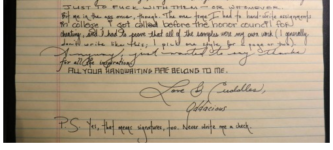 JUST TO FUCK WITH THEM — OR WHOMEVER.
But me in the open never, though. The one time I had to hand write assignments
in college, I got called before the honor council for
cheating, and I had to prove that all of the samples were my own work (I generally
don't write like this; I print one style for a page or two).
Anyway, just wanted to say thanks
for all the inspiration!
ALL YOUR HANDWRITING ARE BELONG TO ME.
Love & Cuddles,
P.S. Yes, that mean signature, too. Never write me a check.